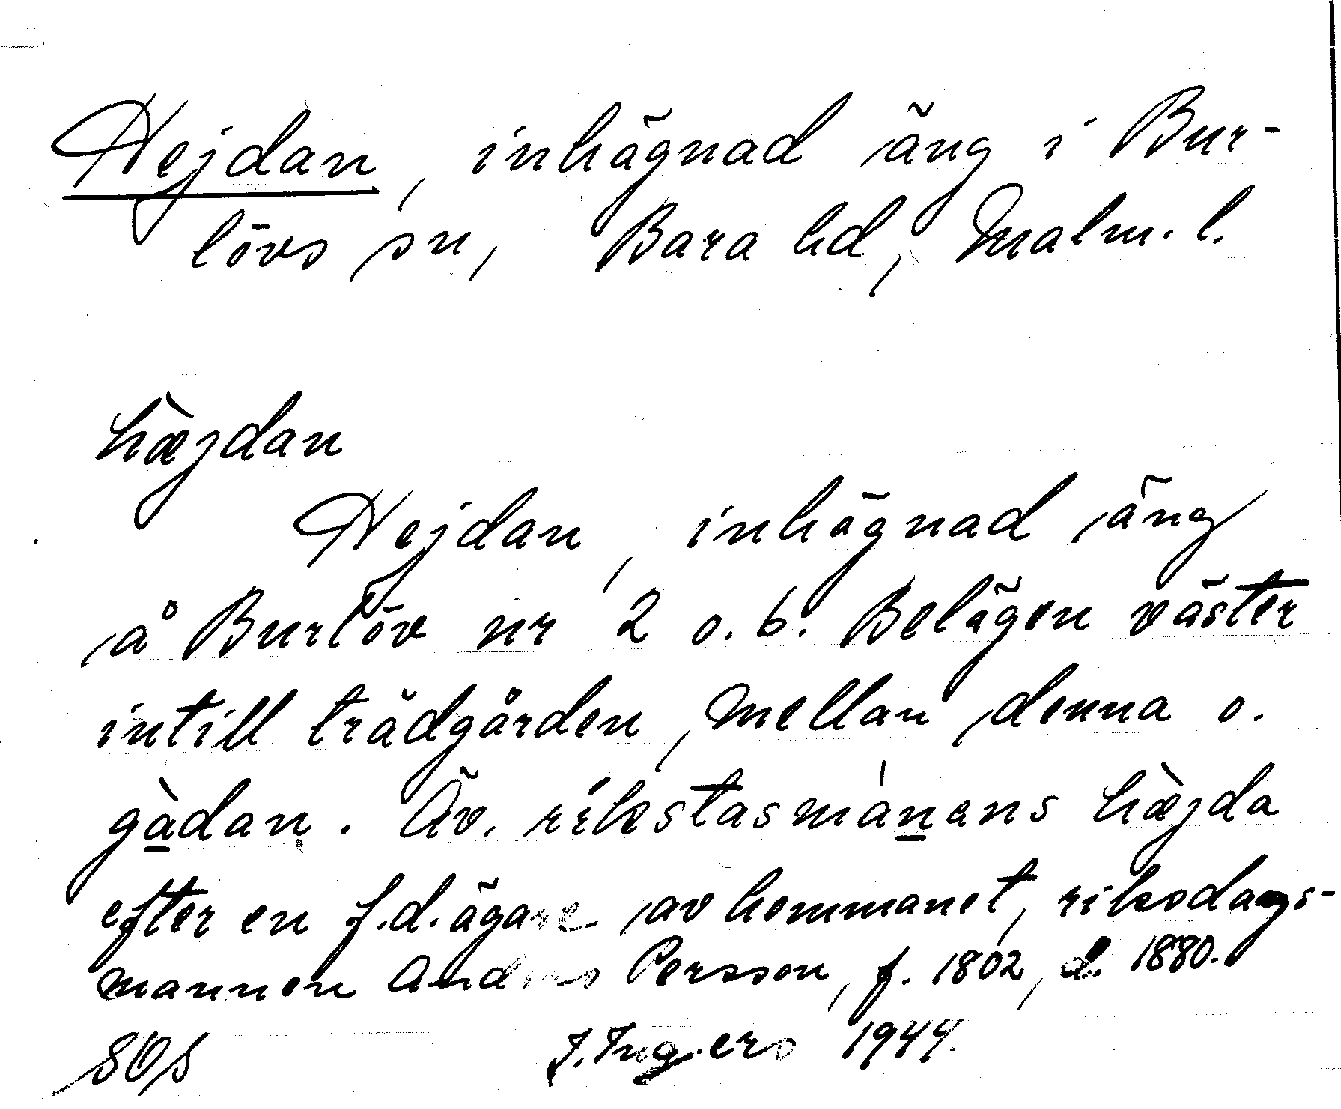 Hejdan, inhägnad äng i Bur-
lövs sn, Bara hd, Malm. l.
hæ̀jdan
Hejdan, inhägnad äng
å Burlöv nr 2 o. 6. Belägen väster
intill trädgården, mellan denna o.
gàdan. Äv. rikstasmànens hæ̀jda
efter en f.d. ägare av hemmanet, riksdags-
mannen Anders Persson, f. 1802, d. 1880.
I. Ingers 1944.